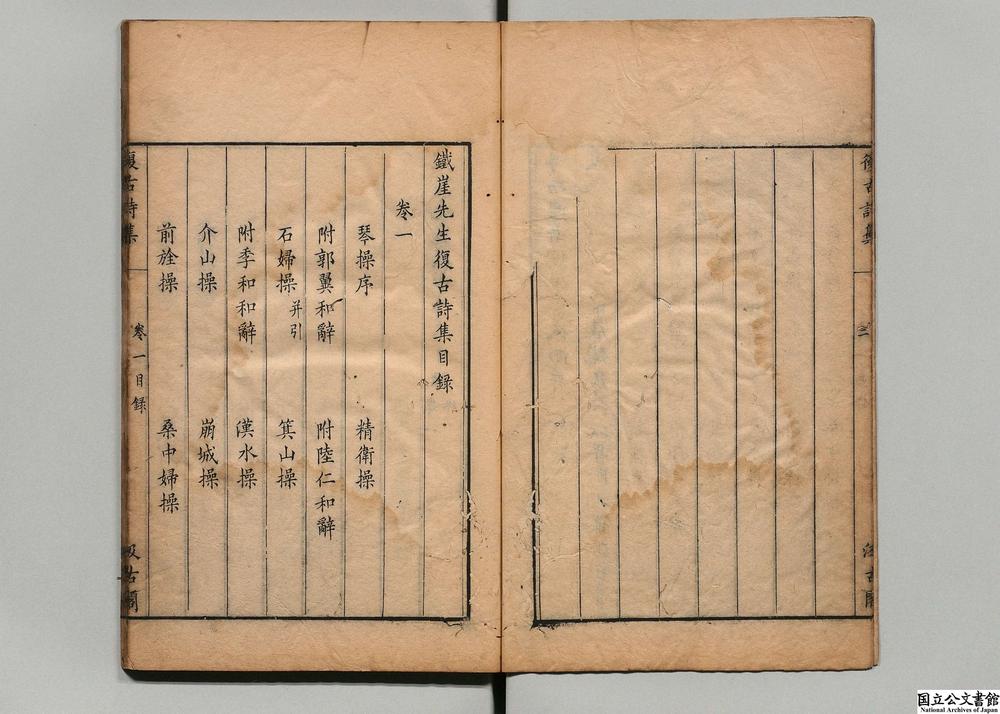 復古詩集
二
汲古閣
鐵崖先生復古詩集目録
卷一
琴操序 精衛操
附郭翼和辭 附陸仁和辭
石婦操并引 箕山操
附李和和辭 漢水操
介山操 崩城操
前旌操 桑中婦操
復古詩集
卷一目録
汲古閣
国立公文書館
National Archives of Japan